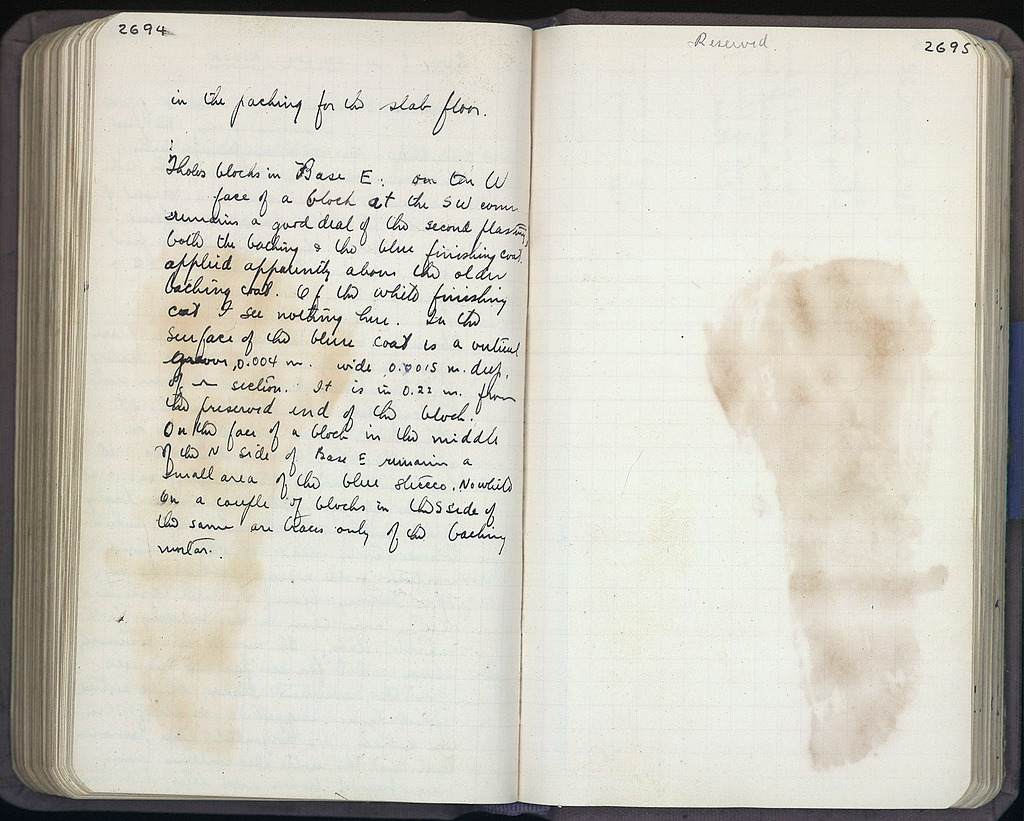 2694
in the packing for the slab floor.
Tholos blocks in Base E: on the W
face of a block at the SW corner
remains a good deal of the second plastering,
both the backing & the blue finishing coat,
applied apparently above the older
backing coat. Of the white finishing
coat I see nothing here. In the
surface of the blue coat is a vertical
groove, 0.004 m. wide, 0.0015 m. deep,
of section. It is in 0.22 m. from
the preserved end of the block.
On the face of a block in the middle
of the N side of Base E remains a
small area of the blue stucco. No white
On a couple of blocks in the S side of
the same are traces only of the backing
mortar.
Reserved.
2695